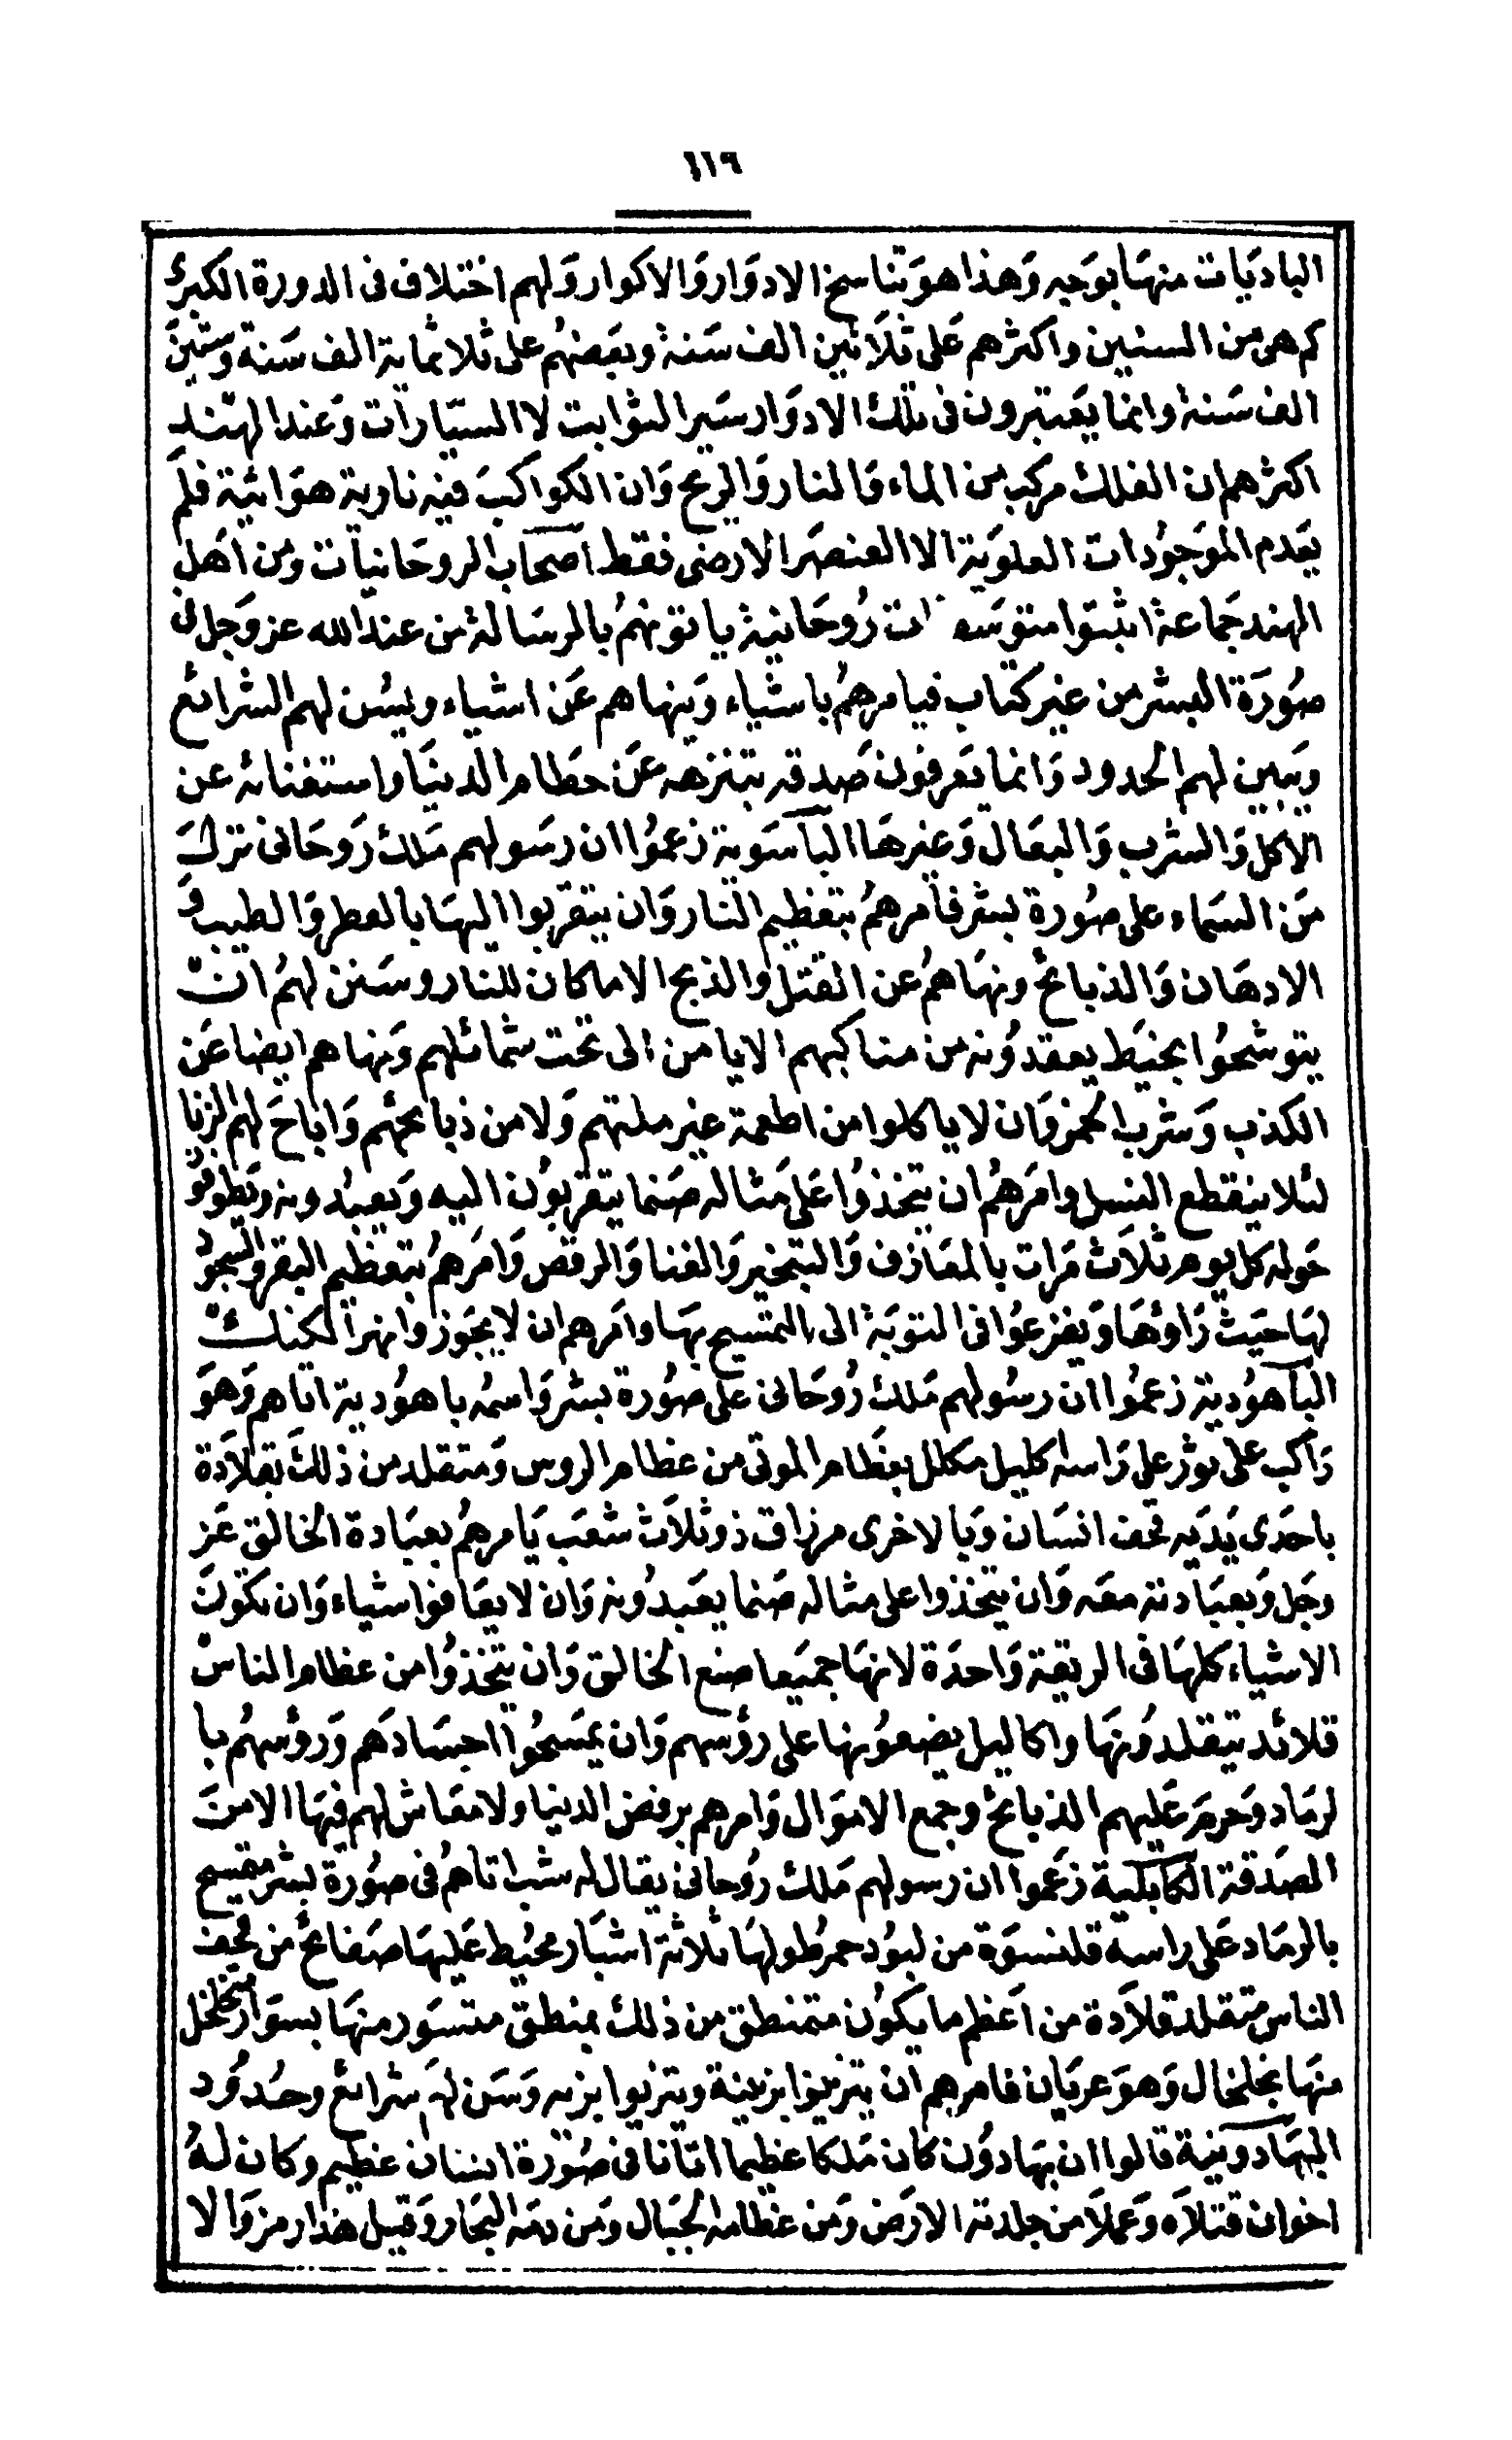 ١١٩
الباديات منها بوجه وهذا هو تناسخ الادوار والاكوار ولهم اختلاف فى الدورة الكبرى
كم هى من السنين واكثرهم على ثلاثين الف سنة وبعضهم على ثلاثمائة الف سنة وستين
الف سنة وانما يعتبرون فى تلك الادوار سير الثوابت لا السيارات وعند الهند
اكثرهم ان الفلك مركب من الماء والنار والريح وان الكواكب فيه نارية هوائية فلم
يعدم الموجودات العلوية الا العنصر الارضى فقط اصحاب الروحانيات ومن اهل
الهند جماعة اثبتوا متوسـ ات روحانية ياتونهم بالرسالة من عند الله عز وجل فى
صورة البشر من غير كتاب فيامرهم باشياء وينهاهم عن اشياء ويسن لهم الشرائع
ويبين لهم الحدود وانما يعرفون صدقه بتنزهه عن حطام الدنيا واستغنائه عن
الاكل والشرب والبعال وغيرها الباسوية زعموا ان رسولهم ملك روحانى نزل
من السماء على صورة بشر فامرهم بتعظيم النار وان يتقربوا اليها بالعطر والطيب و
الادهان والذبائح ونهاهم عن القتل والذبح الا ما كان للنار وسنن لهم ان
يتوشحوا بخيط يعقدونه من مناكبهم الايامن الى تحت شمائلهم ونهاهم ايضا عن
الكذب وشرب الخمر وان لا ياكلوا من اطعمة غير ملتهم ولا من ذبائحهم واباح لهم الزنا
لئلا ينقطع النسل وامرهم ان يتخذوا على مثاله صنما يتقربون اليه ويعبدونه ويطوفو
حوله كل يوم ثلاث مرات بالمعازف والتبخير والغنا والرقص وامرهم بتعظيم البقر والسجود
لها حيث راوها ويفزعوا فى التوبة الى التمسح بها وامرهم ان لا يجوزوا نهر الكنك
الباهودية زعموا ان رسولهم ملك روحانى على صورة بشر واسمه باهودية اتاهم وهو
راكب على ثور على راسه اكليل مكلل بعظام الموتى من عظام الروس ومتقلد من ذلك بقلادة
باحدى يديه قحف انسان وبالاخرى مزراق ذو ثلاث شعب يامرهم بعبادة الخالق عز
وجل وبعبادته معه وان يتخذوا على مثاله صنما يعبدونه وان لا يعافوا شياء وان تكون
الاشياء كلها فى الريقة واحدة لانها جميعا صنع الخالق وان يتخذوا من عظام الناس
قلائد يتقلدونها واكاليل يضعونها على رؤسهم وان يمسحوا اجسادهم ورؤسهم با
لرماد وحرم عليهم الذبائح وجمع الاموال وامرهم برفض الدنيا ولا معاش لهم فيها الا من
الصدقة الكابلية زعموا ان رسولهم ملك روحانى يقال له شب اتاهم فى صورة بشر متمسح
بالرماد على راسه قلنسوة من لبود حمر طولها ثلاثة اشبار محيط عليها صفائح من قحف
الناس متقلد قلادة من اعظم ما يكون متمنطق من ذلك بمنطق متسور منها بسوار متخلخل
منها بخلخال وهو عريان فامرهم ان يتزينوا بزينة ويتزيوا بزيه وسن لهم شرائع وحدود
البهادونية قالوا ان بهادون كان ملكا عظيما اتانا فى صورة انسان عظيم وكان له
اخوان قتلاه وعملا من جلدته الارض ومن عظامه الجبال ومن دمه البحار وقيل هذا رمز والا